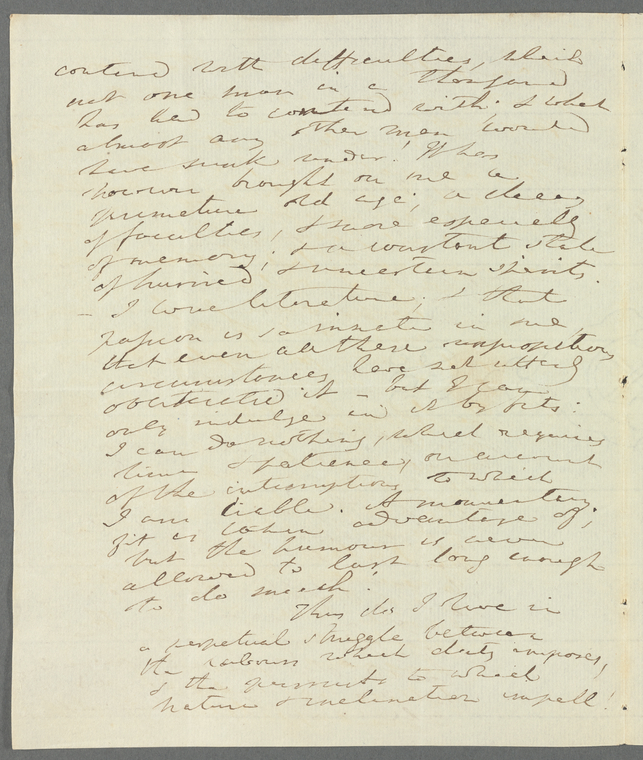 contend with difficulties, which
not one man in a thousand
has had to contend with; & what
almost any other man would
have sunk under! It has
brought on me a
premature old age; a decay
of faculties, & more especially
of memory; & a constant state
of hurried, & uncertain spirits.
– I love literature; & that
passion is so innate in me,
that even all these unpropitious
circumstances have not utterly
obliterated it – but I can
only indulge in it by fits:
I can do nothing, which requires
time & patience, on account
of the interruptions to which
I am liable. A momentary
fit is taken advantage of,
but the humour is never
allowed to last long enough
to do much!
Thus do I live in
a perpetual struggle between
the labours which duty imposes,
& the pursuits to which
nature & inclination impell!